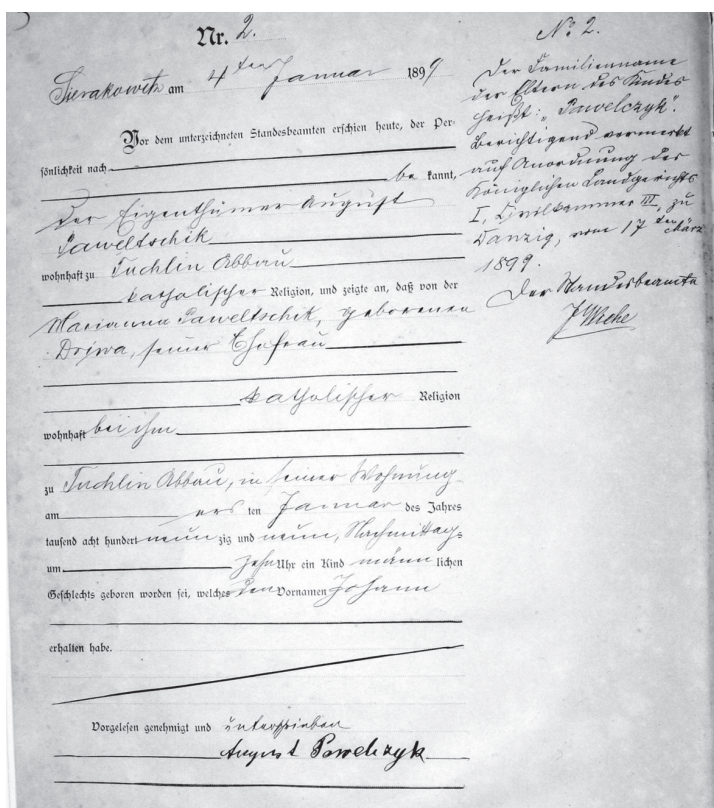 Nr. 2.
Sierakowitz am 4ten Januar 1899
Vor dem unterzeichneten Standesbeamten erschien heute, der Per-
sönlichkeit nach
be kannt,
der Eigenthümer August
Paweltschik
wohnhaft zu Tuchlin Abbau
katholischer Religion, und zeigte an, daß von der
Marianna Paweltschik, geborenen
seiner Ehefrau
katholischer Religion
wohnhaft bei ihm
zu Tuchlin Abbau, in seiner Wohnung
am ers ten Januar des Jahres
tausend acht hundert neun zig und neun, Nachmittags
um zehn Uhr ein Kind männ lichen
Geschlechts geboren worden sei, welches den Vornamen Johann
erhalten habe.
Vorgelesen genehmigt und unterschrieben
August Pawelczyk
No 2.
Der Familienname
der Eltern des Kindes
heißt: „Pawelczyk".
Berichtigend vermerkt
auf Anordnung des
Königlichen Landgerichts
I, Civilkammer III, zu
Danzig, vom 17ten März
1899.
Der Standesbeamte